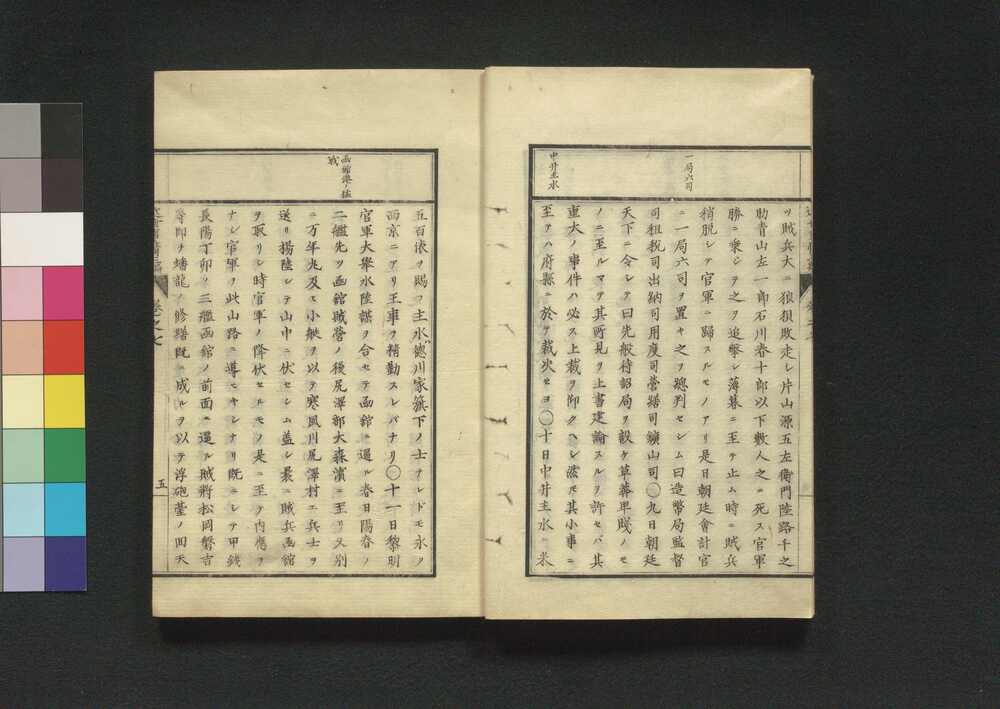 一局六司
中井主水
ツ賊兵大ニ狼狽敗走シ片山源五左衛門陸路千之
助青山左一郎石川春十郎以下数人之ニ死ス官軍
勝ニ乗シテ之ヲ追撃シ薄暮ニ至テ止ム時ニ賊兵
稍脱シテ官軍ニ歸スルモノアリ是日朝廷會計官
ニ一局六司ヲ置キ之ヲ總判セシム曰造幣局監督
司租税司出納司用度司営繕司鑛山司〇九日朝廷
天下ニ令シテ曰先般待詔局ヲ設ケ草莽卑賎ノモ
ノニ至ルマテ其所見ヲ上書建論スルヲ許セバ其
重大ノ事件ハ必ス上裁ヲ仰クヘシ然モ其小事ニ
至テハ府縣ニ於テ裁决セヨ〇十日中井主水ニ米
函館港ノ猛
戦
五百俵ヲ賜フ主水徳川家簱下ノ士ナレドモ永ク
西京ニアリ王事ヲ精勤スレバナリ〇十一日黎明
官軍大擧水陸謀ヲ合セテ函館ニ逼ル春日陽春ノ
二艦先ツ函館賊営ノ後尻澤部大森濱ニ至リ又別
ニ万年丸及ヒ小舩ヲ以テ寒風川尻澤村ニ兵士ヲ
送リ揚陸シテ山中ニ伏セシム蓋シ曩ニ賊兵函館
ヲ取リシ時官軍ノ降伏セルモノ是ニ至テ内應ヲ
ナシ官軍ヲ此山路ニ導キシナリ既ニシテ甲銕
長陽丁卯ノ三艦函館ノ前面ニ逼ル賊將松岡磐吉
等即チ蟠龍ノ修繕既ニ成ルヲ以テ浮砲䑓ノ回天
五